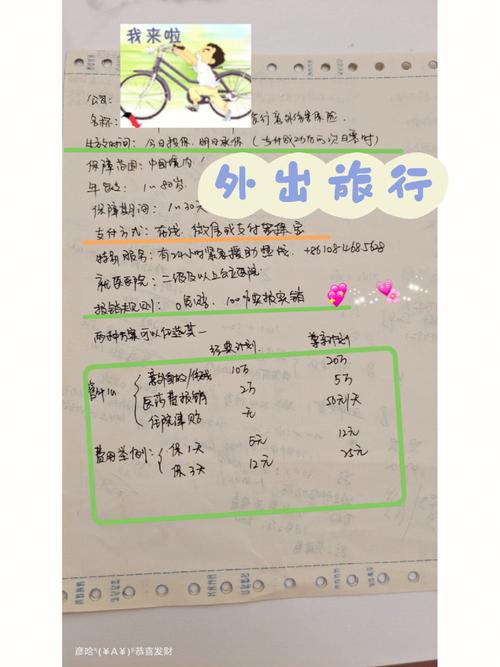 我来啦
公司:
名称: 旅行意外伤害保险
生效时间: 今日投保,明日承保(支付成功后次日零时)
外出旅行
保障范围: 中国境内
年龄: 1~80岁
保障期间: 1~30天
支付方式: 在线、微信或支付宝
特别服务: 有24小时紧急援助热线 +86108468568
就医医院: 二级及以上公立医院
报销规则: 0免赔,100%实报实销
两种方案可以任选其一
经典计划 尊享计划
意外身故/伤残 10万 20万
医药费报销 2万 5万
住院津贴 无 50元/天
费用举例: 保1天 5元 12元
保3天 12元 25元
彦哈"(¥A¥)"恭喜发财